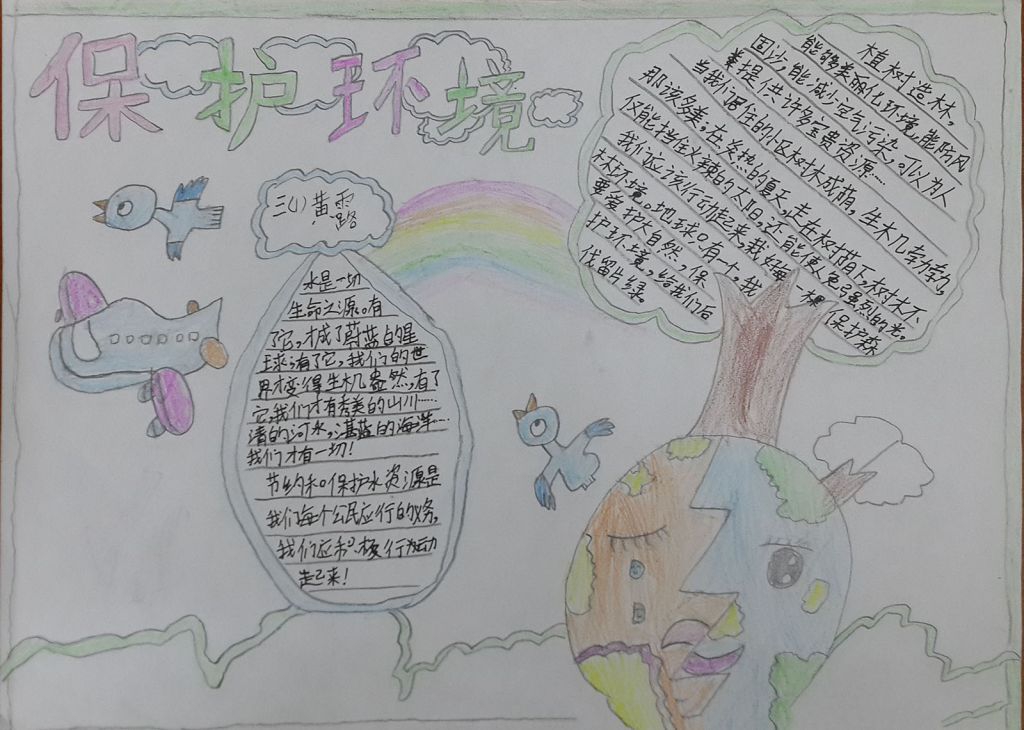 保护环境
三(1) 黄露
水是一切
生命之源。有
了它,才成了蔚蓝色的星
球;有了它,我们的世
界才变得生机盎然,有了
它,我们才有秀美的山川……
清的河水,湛蓝的海洋……
我们才有一切!
节约和保护水资源是
我们每个公民应行的义务,
我们应积极行动
起来!
植树造林。
能够美丽化环境,能防风
固沙,能减少空气污染。可以为人
类提供许多宝贵资源……
当我们居住的小区树木成荫,生机勃勃,
那该多美。在炎热的夏天,走在树荫下,树木不
仅能挡住火辣的太阳,还能使人免予强烈的光。
我们应该行动起来,栽好每一棵 保护森
林环境。地球只有一个。我
要爱护大自然,保
护环境,给我们后
代留片绿。